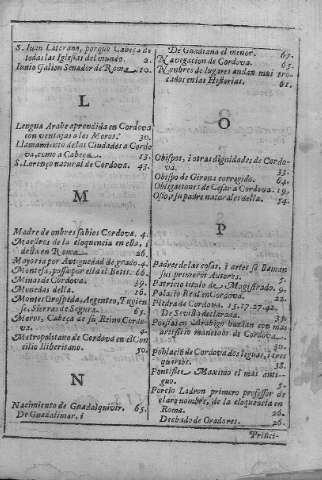 S. Iuan Laterano, porque Cabeça de
todas las Iglesias del mundo. 2.
Iunio Galion Senador de Roma. 10.
L
Lengua Arabe aprendida en Cordova
con ventajas a los Moros. 30.
Llamamiento de las Ciudades a Cordo
va, como a Cabeça. 13.
S. Lorenço natural de Cordova. 43.
M
Madre de ombres sabios Cordova. 4.
Maestros de la eloquencia en ella, i
della en Roma. 26.
Mayoria por Antiguedad de grado. 4.
Montesa, passa por ella el Betis. 60.
Minas de Cordova 39.
Muneda della. 16.
Montes Orospeda, Argenteo, Tugien
se, Sierras de Segura. 63.
Moros, Cabeça de su Reino Cordo-
va. 4.
Metropolitano de Cordova en el Con
cilio Iliberitano. 50.
N
Nacimiento de Guadalquivir. 65.
De Guadalimar. i
De Guadiana el menor. 67.
Navegacion de Cordova. 65.
Nombres de lugares andan mui tro-
cados en las Historias. 61.
O
Obispos, i otras dignidades de Cordo-
va. 33.
Obispo de Girona corregido. 64.
Obligaciones de Cesar a Cordova. 19.
Osio, su padre natural es della. 54.
P
Padres de las cosas, i artes se llaman
sus primeros Autores. 5.
Patricio titulo de Magistrado. 9.
Palacio Real en Cordova. 22.
Pitdra de Cordova. 15.17.27.42.
De Sevilla declarada. 39.
en Cordova dos leguas, i tres
38.
Pontifice Maximo el mas anti-
guo. 5.
Porcio Ladron primero professor de
claro nombre, de la eloquencia en
Roma. 26.
Dechado de Oradores. 26.
Princi-